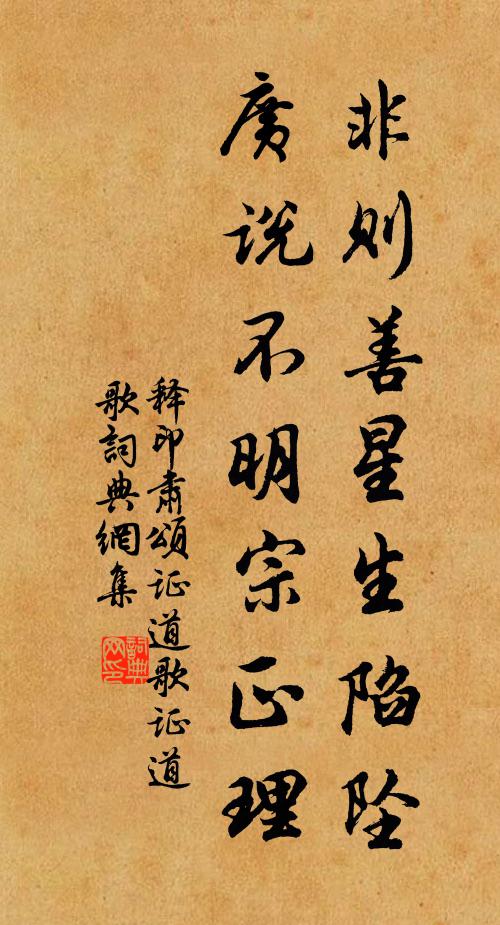 非则善星生陷坠
广说不明宗正理
释印肃颂证道歌证道
歌詞典網集
詞典网印